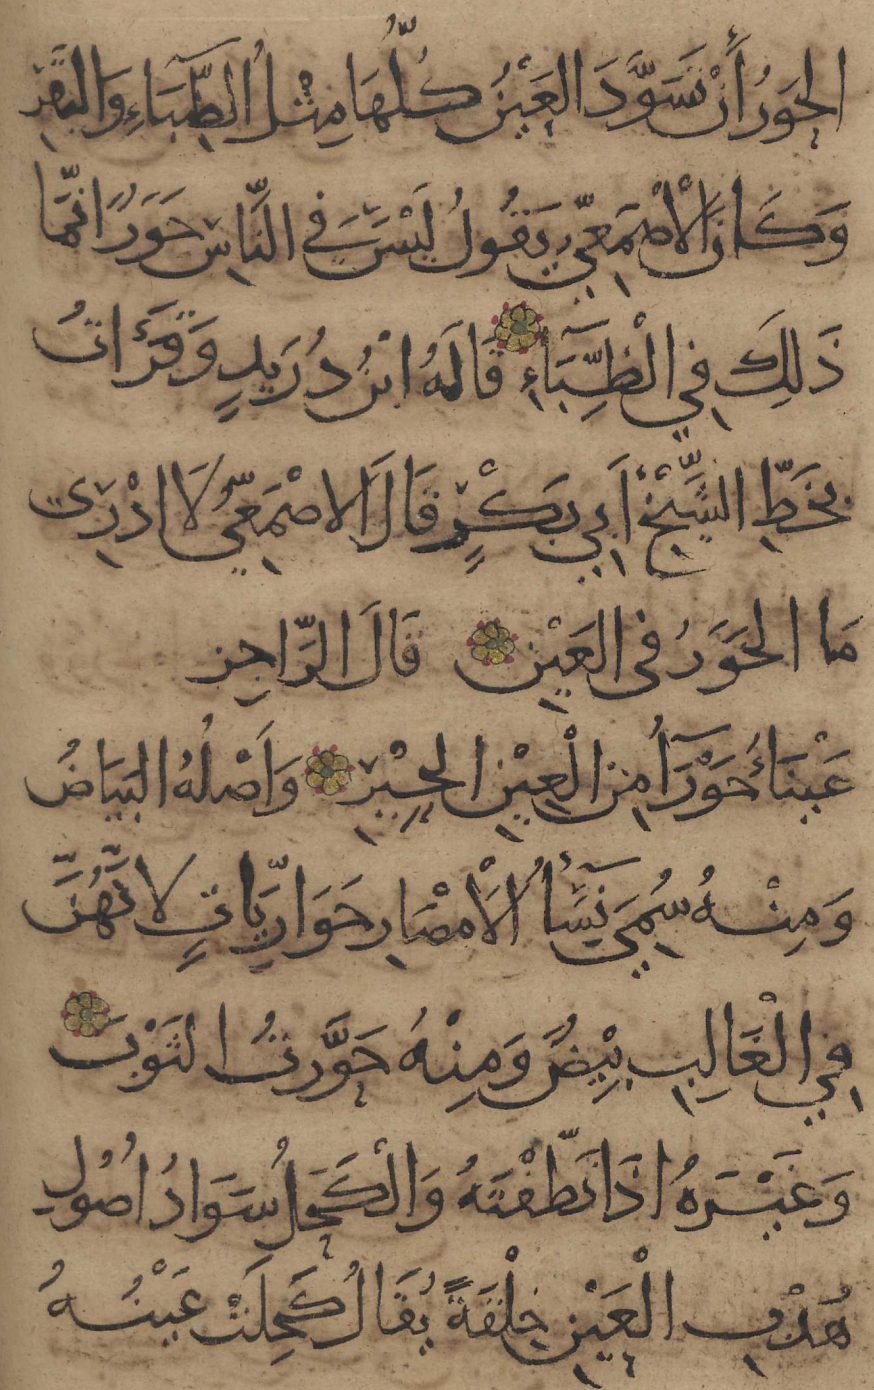 الحَوَرُ أَنْ تَسْوَدَّ العَيْنُ كُلُّهَا مِثْلُ الظِّبَآءِ وَالبَقَرِ
وَكَانَ الْأَصْمَعِيُّ يَقُولُ لَيْسَ فِي النَّاسِ حَوَرٌ انَّمَا
ذَلِكَ فِي الْظِّبَآءِ قَالَهُ ابْنُ دُرَيْدٍ وَقَرَاتُ
بِخَطِّ الشَّيْخِ أَبِي بَكْرٍ قَالَ الاصْمَعِيُّ لَا ادْرِي
مَا الحَوَرُ فِي العَيْنِ قَالَ الرَّاجِز
عَيْنَاءُ حَوْرَآءُ مِنَ الْعِيْنِ الحِيْرِ وَاَصْلُهُ البَيَاضُ
وَمِنْهُ سُمِّيَ نِسَآءُ الْأَمْصَارِ حَوَارِيَّاتٍ لِانَّهُنَّ
فِي الْغَالِبِ بِيْضٌ وَمِنْهُ حَوَّرْتُ الثَوْبَ
وَغَيْرَهُ اذَا نَظَّفْتَهُ وَالْكَحَلُ سَوَادُ اصُولِ
هُدْبِ الْعَيْنِ خِلْقَةً يُقَالُ كَحِلَتْ عَيْنُهُ